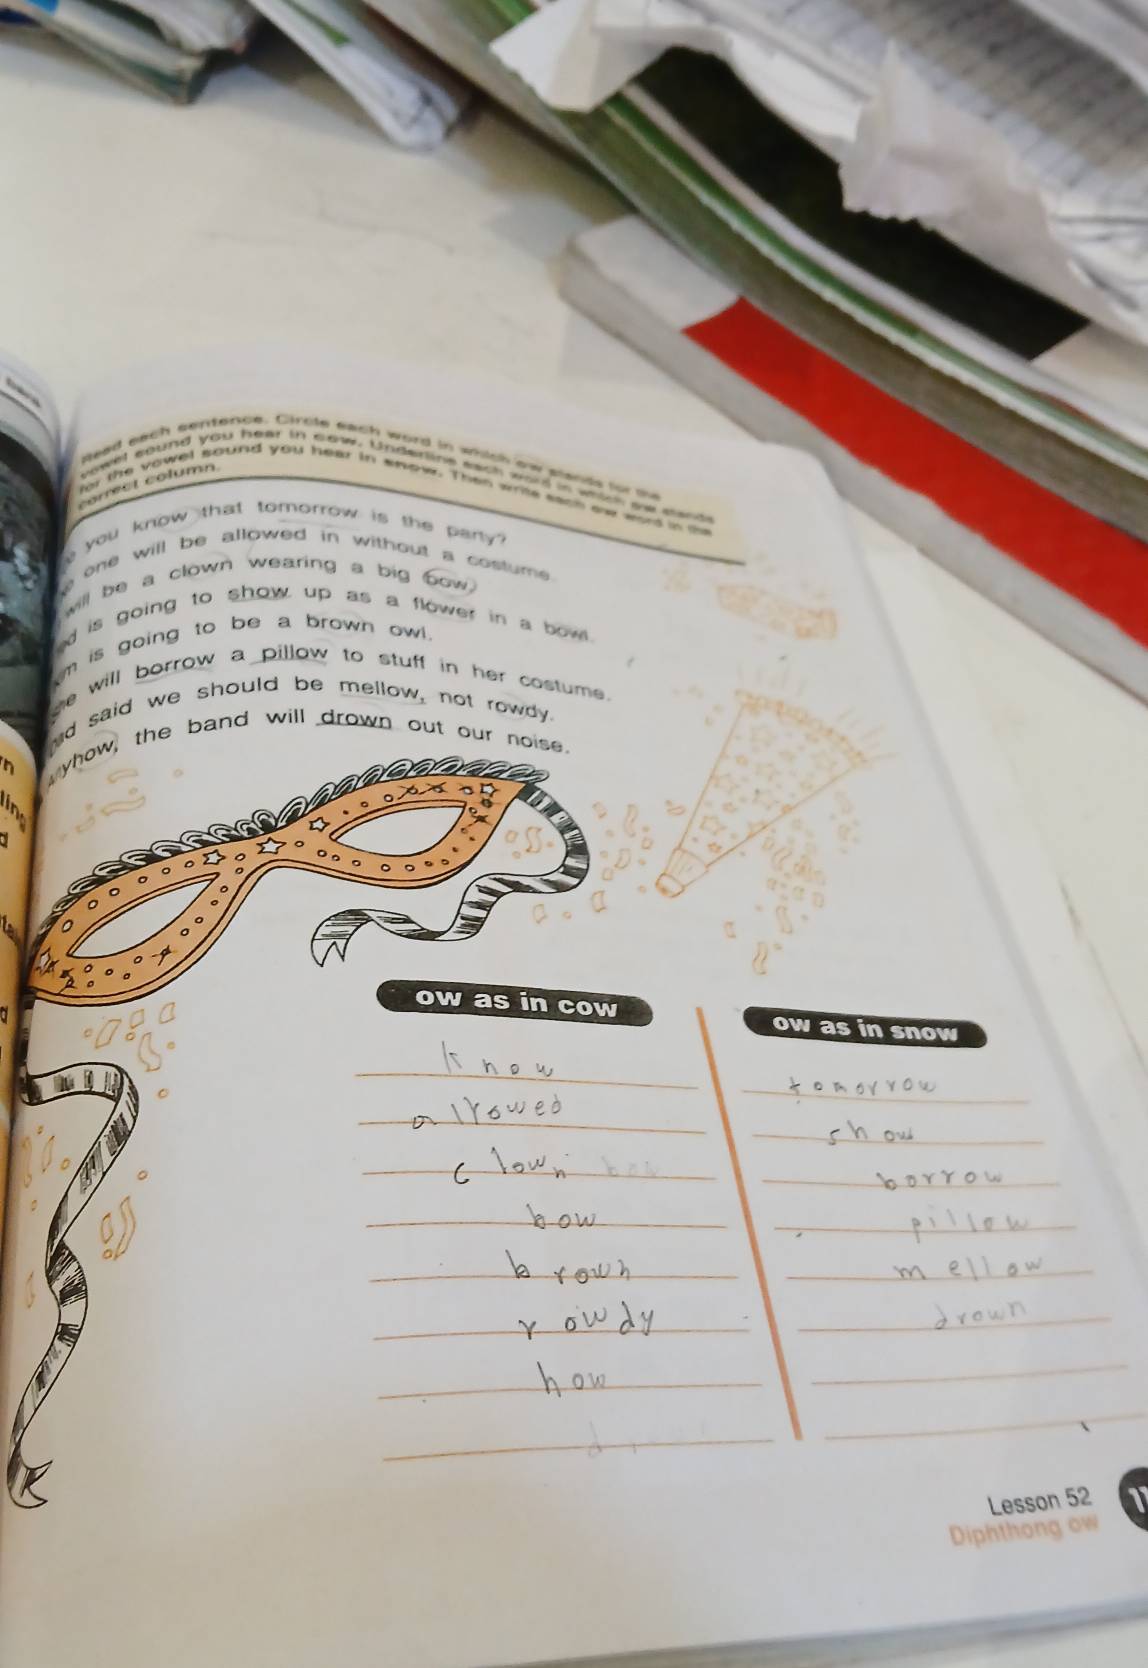 Read each sentence. Circle each word in which ow stands for the
vowel sound you hear in cow. Underline each word in which ow stands
for the vowel sound you hear in snow. Then write each ow word in the
correct column.
you know that tomorrow is the party?
one will be allowed in without a costume.
will be a clown wearing a big bow.
is going to show up as a flower in a bowl.
is going to be a brown owl.
will borrow a pillow to stuff in her costume.
said we should be mellow, not rowdy.
Anyhow, the band will drown out our noise.
ow as in cow
know
allowed
clown
bow
brown
rowdy
how
ow as in snow
tomorrow
show
borrow
pillow
mellow
drown
Lesson 52
Diphthong ow